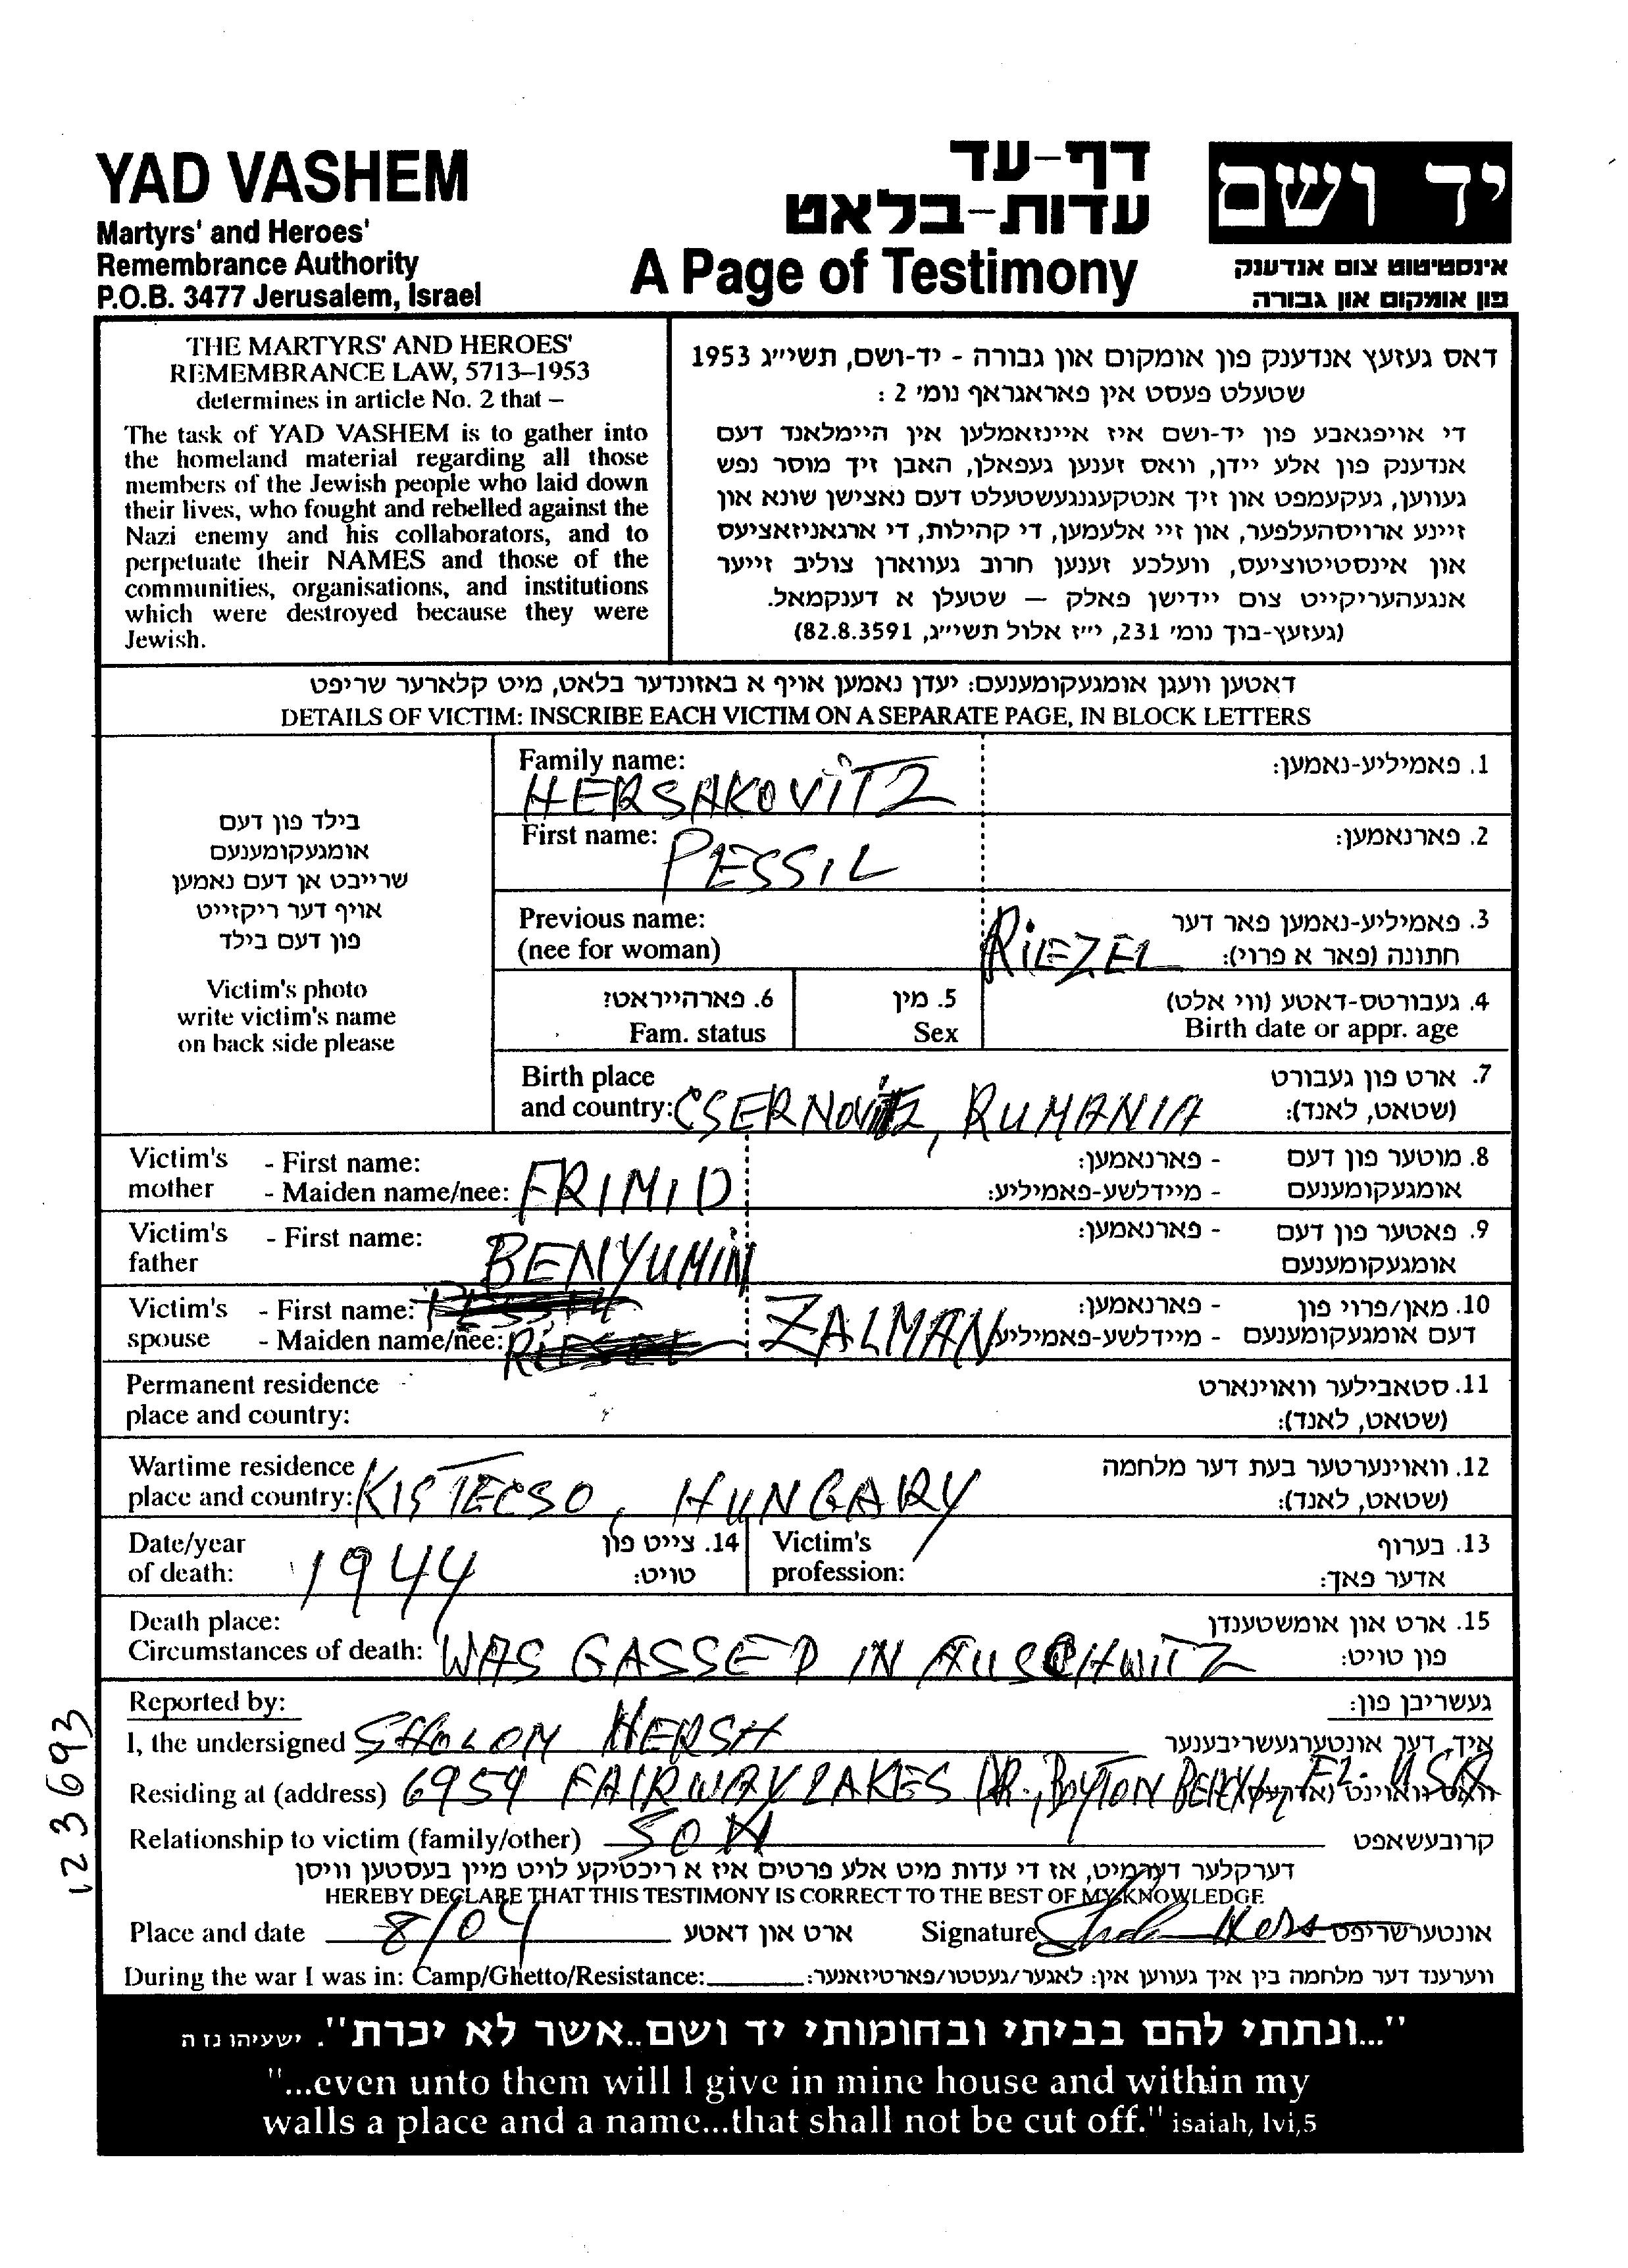 YAD VASHEM
Martyrs' and Heroes'
Remembrance Authority
P.O.B. 3477 Jerusalem, Israel
דף-עד
עדות-בלאט
A Page of Testimony
יד ושם
אינסטיטוט צום אנדענק
פון אומקום און גבורה
THE MARTYRS' AND HEROES'
REMEMBRANCE LAW, 5713–1953
determines in article No. 2 that –
The task of YAD VASHEM is to gather into
the homeland material regarding all those
members of the Jewish people who laid down
their lives, who fought and rebelled against the
Nazi enemy and his collaborators, and to
perpetuate their NAMES and those of the
communities, organisations, and institutions
which were destroyed because they were
Jewish.
דאס געזעץ אנדענק פון אומקום און גבורה - יד-ושם, תשי״ג 1953
שטעלט פעסט אין פאראגראף נומ׳ 2 :
די אויפגאבע פון יד-ושם איז איינזאמלען אין היימלאנד דעם
אנדענק פון אלע יידן, וואס זענען געפאלן, האבן זיך מוסר נפש
געווען, געקעמפט און זיך אנטקעגנגעשטעלט דעם נאצישן שונא און
זיינע ארויסהעלפער, און זיי אלעמען, די קהילות, די ארגאניזאציעס
און אינסטיטוציעס, וועלכע זענען חרוב געווארן צוליב זייער
אנגעהעריקייט צום יידישן פאלק — שטעלן א דענקמאל.
(געזעץ-בוך נומ׳ 231, י״ז אלול תשי״ג, 82.8.3591)
דאטען וועגן אומגעקומענעם: יעדן נאמען אויף א באזונדער בלאט, מיט קלארער שריפט
DETAILS OF VICTIM: INSCRIBE EACH VICTIM ON A SEPARATE PAGE, IN BLOCK LETTERS
בילד פון דעם
אומגעקומענעם
שרייבט אן דעם נאמען
אויף דער ריקזייט
פון דעם בילד
Victim's photo
write victim's name
on back side please
Family name: 1. פאמיליע-נאמען:
HERSAKOVITZ
First name: PESSIL 2. פארנאמען:
Previous name: 3. פאמיליע-נאמען פאר דער
(nee for woman) RIEZEL חתונה (פאר א פרוי):
6. פארהייראטט? 5. מין 4. געבורטס-דאטע (ווי אלט)
Fam. status Sex Birth date or appr. age
Birth place 7. ארט פון געבורט
and country: CSERNOVITZ, RUMANIA (שטאט, לאנד):
Victim's - First name: - פארנאמען: 8. מוטער פון דעם
mother - Maiden name/nee: FRIMID - מיידלשע-פאמיליע: אומגעקומענעם
Victim's - First name: - פארנאמען: 9. פאטער פון דעם
father BENYUMIN אומגעקומענעם
Victim's - First name: - פארנאמען: 10. מאן/פרוי פון
spouse - Maiden name/nee: ZALMAN - מיידלשע-פאמיליע דעם אומגעקומענעם
Permanent residence 11. סטאבילער וואוינארט
place and country: (שטאט, לאנד):
Wartime residence 12. וואוינערטער בעת דער מלחמה
place and country: KISTECSO, HUNGARY (שטאט, לאנד):
Date/year 14. צייט פון Victim's 13. בערוף
of death: 1944 טויט: profession: אדער פאך:
Death place: 15. ארט און אומשטענדן
Circumstances of death: WAS GASSED IN AUSCHWITZ פון טויט:
Reported by: געשריבן פון:
I, the undersigned SHOLOM HERSH איך, דער אונטערגעשריבענער
Residing at (address) 6959 FAIRWAY LAKES DR., BOYTON BEACH, FL. USA
Relationship to victim (family/other) SON קרובעשאפט
דערקלער דערמיט, אז די עדות מיט אלע פרטים איז א ריכטיקע לויט מיין בעסטען וויסן
HEREBY DECLARE THAT THIS TESTIMONY IS CORRECT TO THE BEST OF MY KNOWLEDGE
Place and date 8/04 ארט און דאטע Signature אונטערשריפט
During the war I was in: Camp/Ghetto/Resistance: ווערענד דער מלחמה בין איך געווען אין: לאגער/געטטו/פארטיזאנער:
"...ונתתי להם בביתי ובחומותי יד ושם..אשר לא יכרת". ישעיהו נז ה
"...even unto them will I give in mine house and within my
walls a place and a name...that shall not be cut off." isaiah, lvi,5
123693